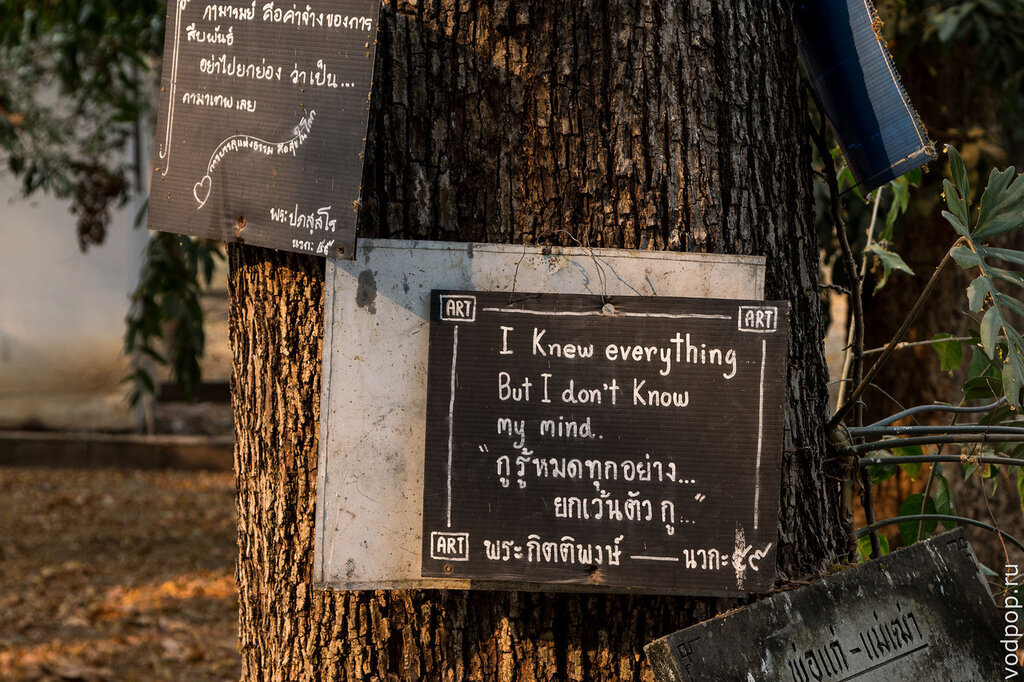 กามารมย์ คือค่าจ้างของการ
สืบพันธ์
อย่าไปยกย่อง ว่าเป็น...
กามาเทพ เลย
พระปภสฺสโร
นวกะ ๕๙
ART
ART
I Knew everything
But I don't Know
my mind..
"กูรู้หมดทุกอย่าง...
ยกเว้นตัว กู..."
ART
พระกิตติพงษ์ — นวกะ ๕๙
พ่อแก่ - แม่เฒ่า
vodpop.ru